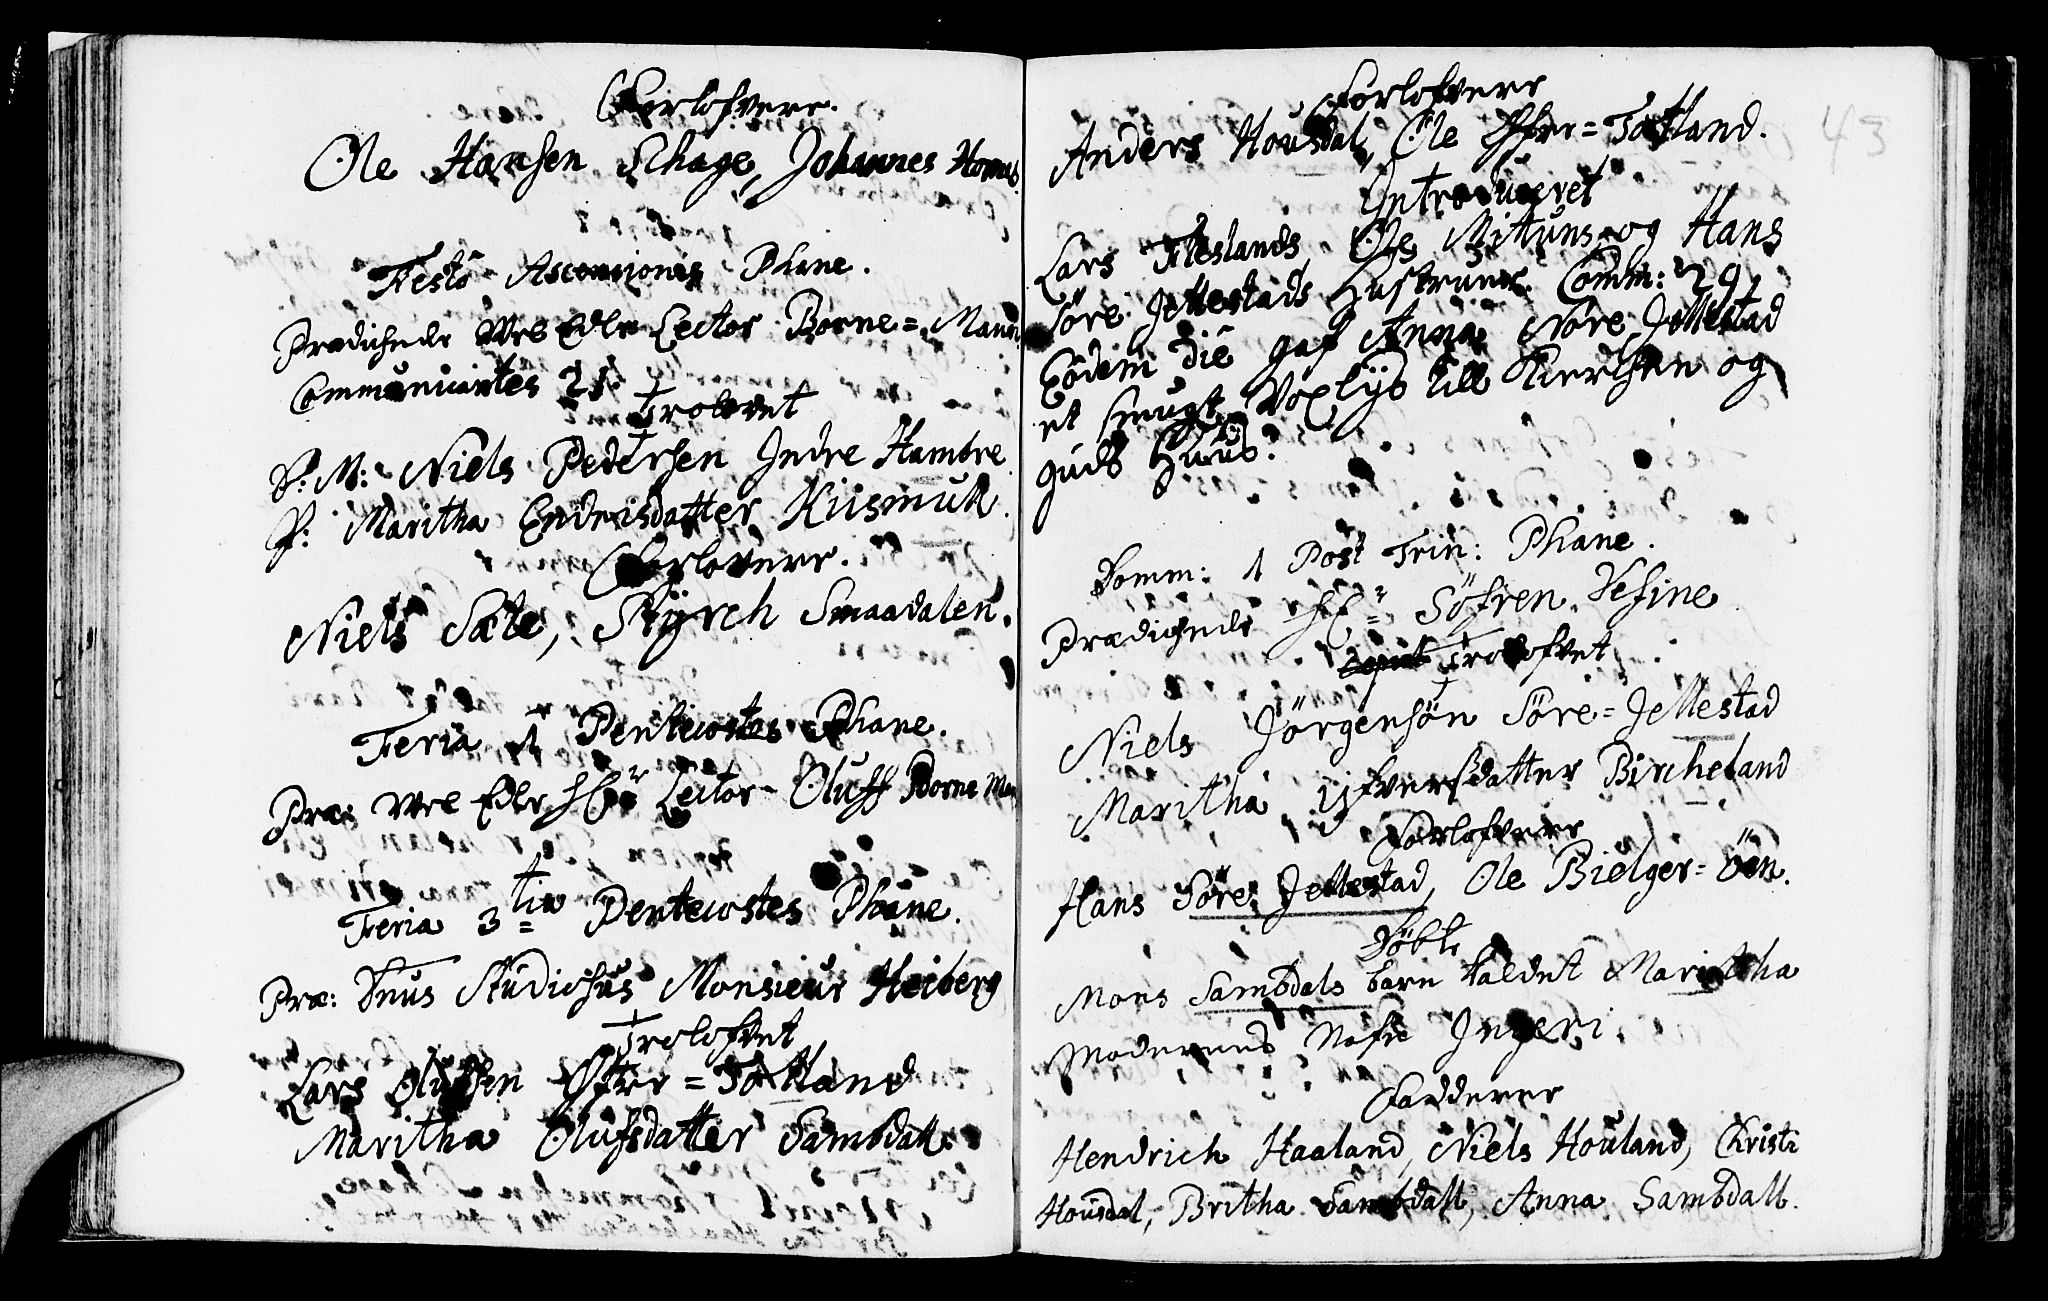 Forlofvere.
Ole Hansen Schage, Johannes Homas
Festo Ascensiones Phane.
Prædichede Vel Edle Lector Borne=Mann
Communicantes 21
Trolovet
S: M: Niels Pedersen Indre Hambre
P: Maritha Endrisdatter Kiismull.
Forlovere.
Niels Sæle, Styrch Smaadalen.
Feria 1 Pentecostes Phane.
Præ: Vel Edle Hr Lector Oluff Borne Man
Feria 3tia Pentecostes Phane.
Præ: Dnus Studiosus Monsieur Heiberg
Trolofvet
Lars Olufsen Øfre=Totland
Maritha Olufsdatter Sambdall.
43
Forlofvere
Anders Housdal, Ole Øfre=Totland.
Introduceret
Lars Fleslands, Ole Mituns og Hans
Söre Jellestads Hustruer. Comm: 29,
Eodem die gaf Anna Nöre Jellestad
et smugt Voxlys till Kierchen og
guds Huus.
Domm: 1 Post Trin: Phane.
Prædichede Hr Söfren Vesine
Trolofvet
Niels Jörgensön Söre=Jellestad
Maritha Iifversdatter Bircheland
Forlofvere
Hans Söre Jellestad, Ole Bielger=Öen.
Döbt
Mons Sambdals barn kaldet Maritha
Moderens Nafn Ingeri.
Fadderer
Hendrich Haaland, Niels Houland, Christi
Housdal, Britha Sambdall, Anna Sambdall.